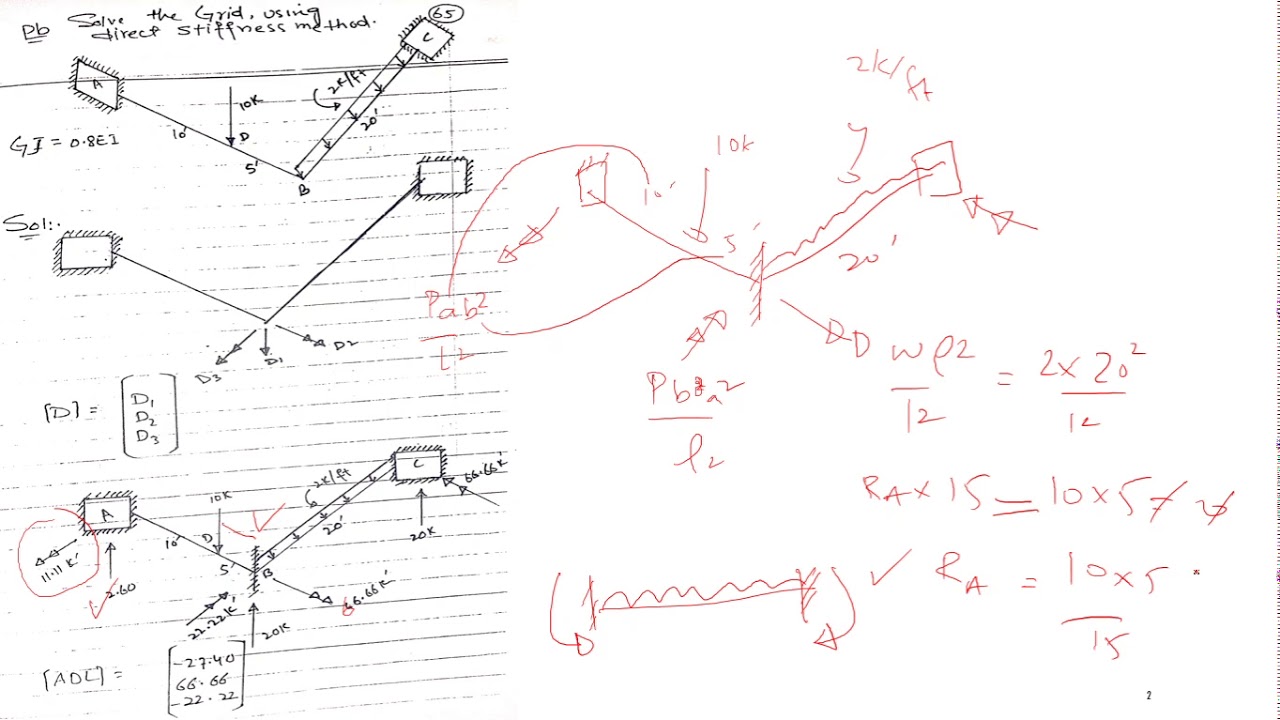 Pb Solve the Grid, using
direct stiffness method.
65
C
A
10K
2K/ft
20'
10'
D
5'
B
GI = 0.8EI
Sol:.
D3
D1
D2
[D] =
D1
D2
D3
A
10K
2K/ft
C
66.66K'
10'
D
20'
20K
5'
B
11.11K'
2.60
22.22K'
20K
66.66K'
[ADL] =
-27.40
66.66
-22.22
2K/ft
10K
10'
5'
20'
Pab²
l2
Pb²a2
l2
wl2
12
= 2x20²
12
RA x 15 = 10x5
RA = 10x5
15